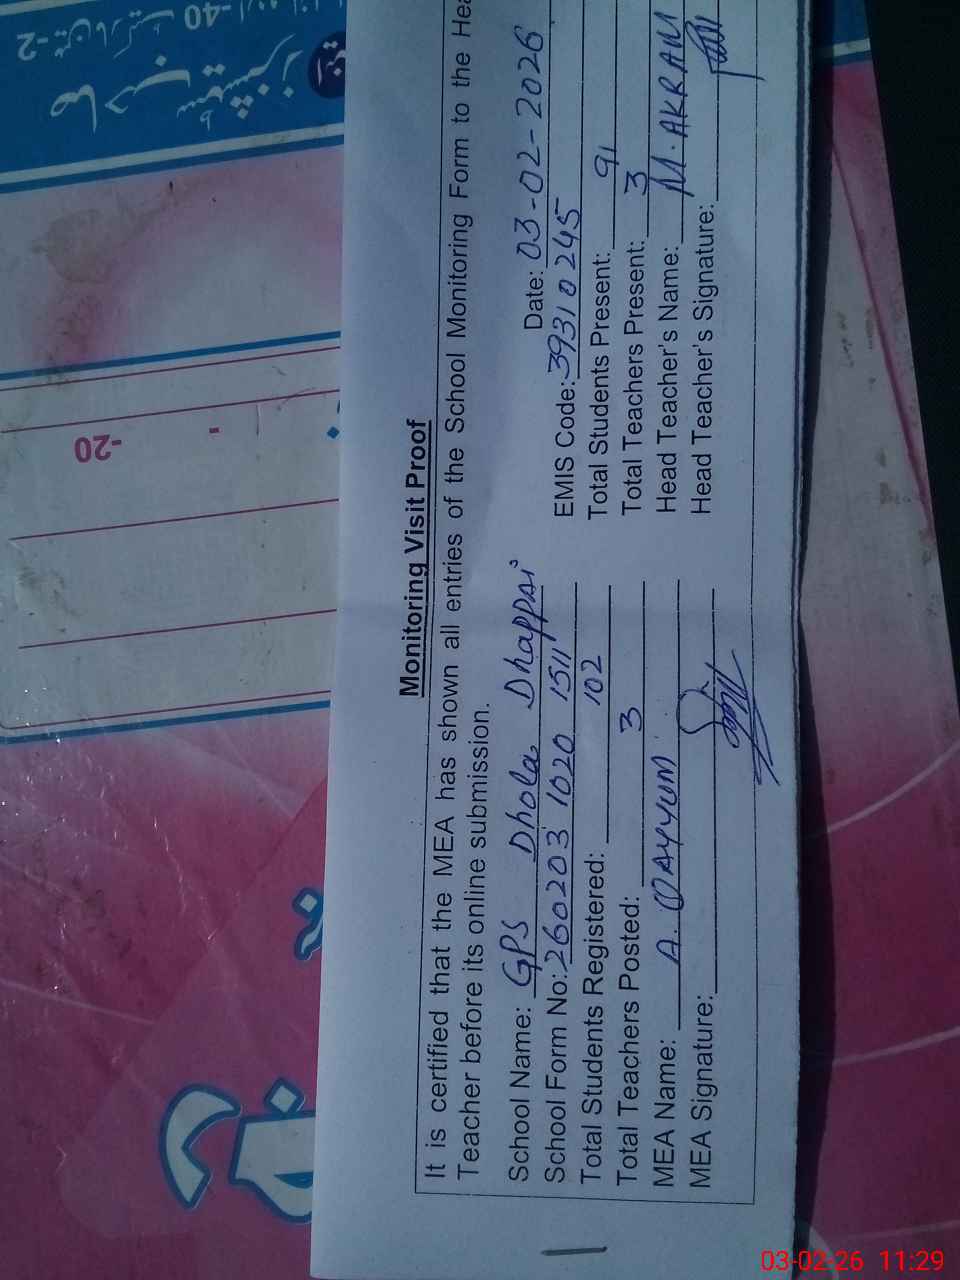 Monitoring Visit Proof
It is certified that the MEA has shown all entries of the School Monitoring Form to the Hea
Teacher before its online submission.
School Name: GPS Dhola Dhappai Date: 03-02-2026
School Form No: 260203 1020 1511 EMIS Code: 39310245
Total Students Registered: 102 Total Students Present: 91
Total Teachers Posted: 3 Total Teachers Present: 3
MEA Name: A. QAYYUM Head Teacher's Name: M. AKRAM
MEA Signature: Head Teacher's Signature:
-20
03-02-26 11:29